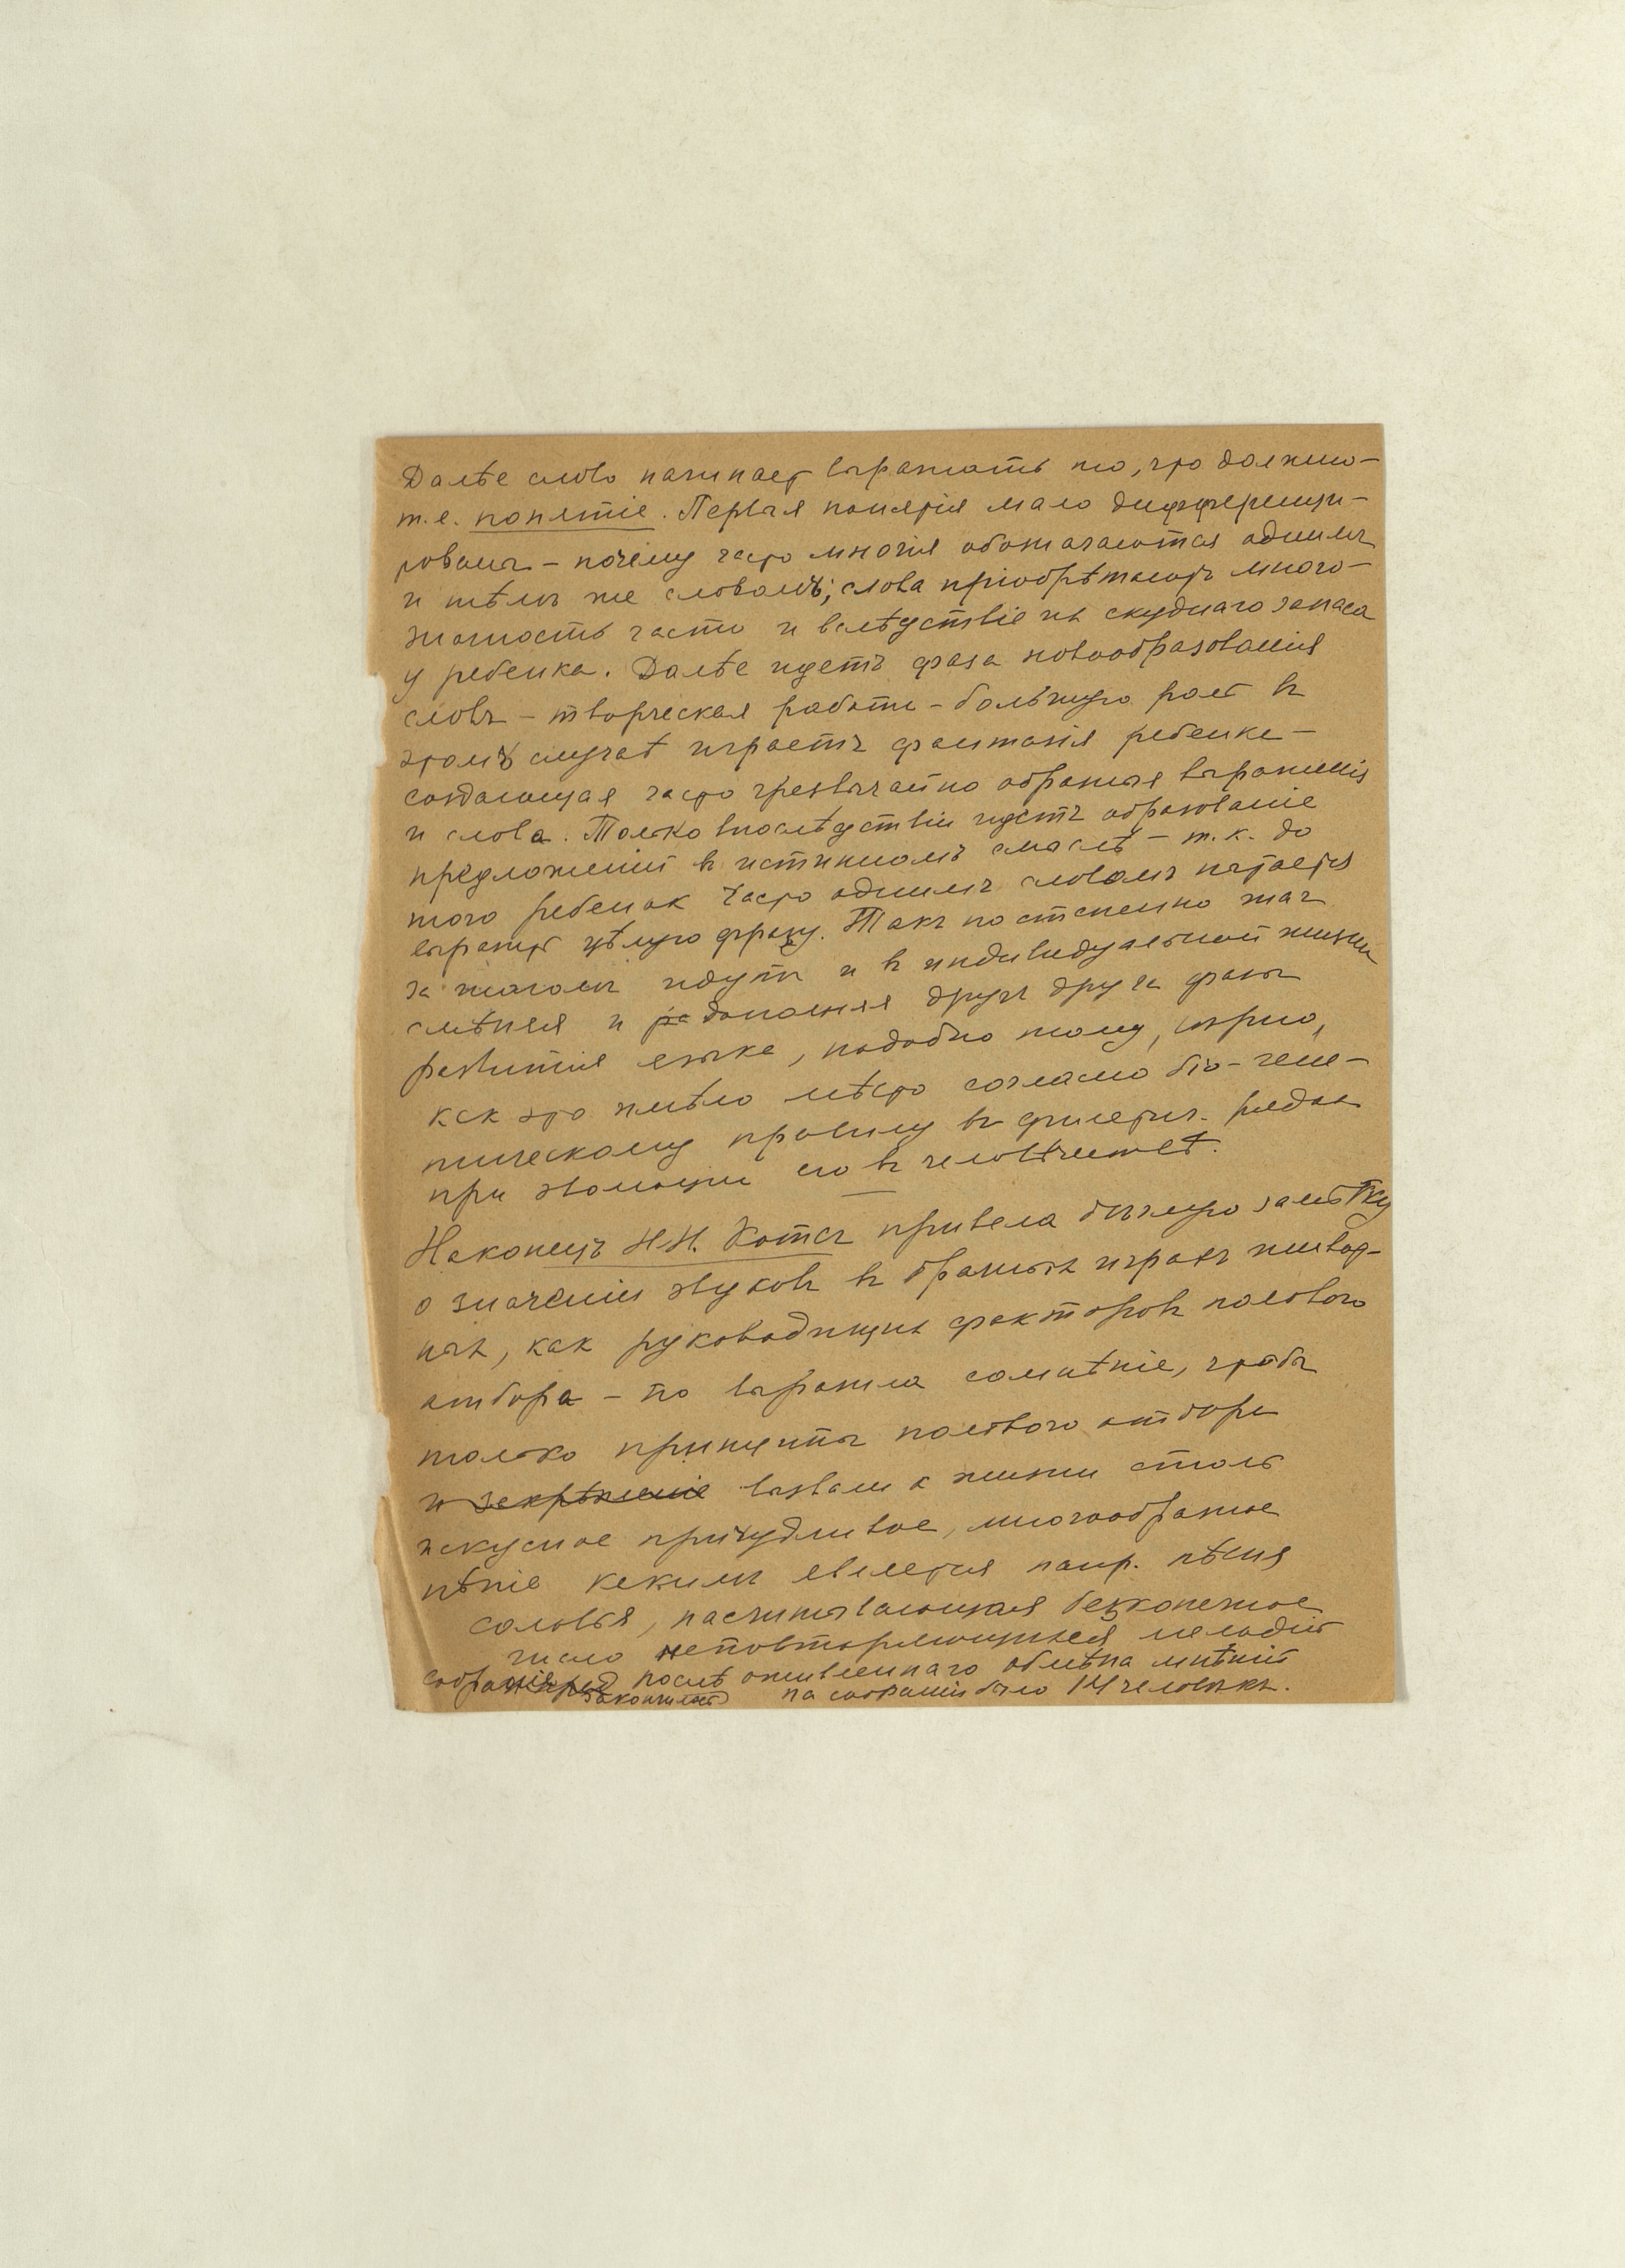 Далѣе слово начинает выражать то, что должно –
т.е. понятіе. Первыя понятія мало дифференци-
рованы – почему часто многія обозначаются однимъ
и тѣмъ же словомъ; слова пріобрѣтаютъ много-
значность часто и вслѣдствіе их скуднаго запаса
у ребенка. Далѣе идетъ фаза новообразованія
словъ – творческая работа – большую роль въ
этомъ случаѣ играетъ фантазія ребенка –
создающая часто чрезвычайно образныя выраженія
и слова. Только впослѣдствіи идетъ образованіе
предложеній въ истинномъ смыслѣ – т.к. до
того ребенок часто однимъ словомъ пытается
выразить цѣлую фразу. Такъ постепенно шаг
за шагомъ идутъ и въ индивидуальной жизни
смѣняя и дополняя другъ друга фазы
развитія языка, подобно тому,
как это имѣло мѣсто согласно біо-гене-
тическому принципу въ филетич. рядах
при эволюціи его въ человѣчествѣ.
Наконецъ Н.Н. Котсъ привела бѣглую замѣтку
о значеніи звуковъ въ брачныхъ играхъ живот-
ных, как руководящих факторовъ полового
отбора – но выразила сомнѣніе, чтобы
только принципы полового отбора
и закрѣпленіе вызвали к жизни столь
искусное причудливое, многообразное
пѣніе какимъ является напр. пѣсня
соловья, насчитывающая безконечное
число неповторяющихся мелодій
Собраніе послѣ оживленнаго обмѣна мнѣній
закончилось на собраніи было 14 человѣкъ.